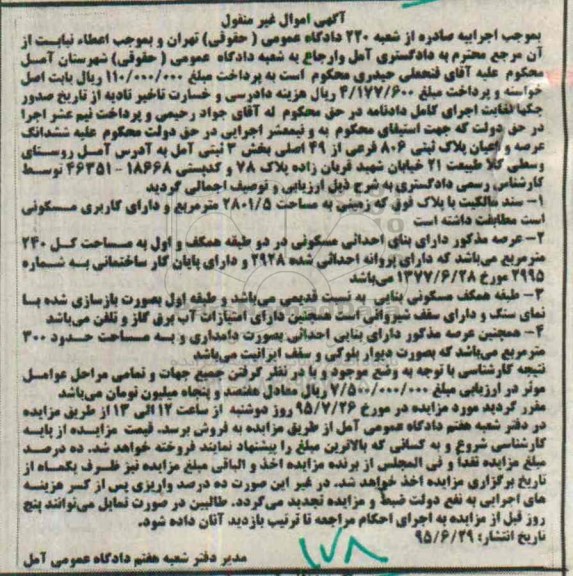 آگهی اموال غیر منقول
بموجب اجراییه صادره از شعبه ۲۲۰ دادگاه عمومی ( حقوقی) تهران و بموجب اعطاء نیابت از
آن مرجع محترم به دادگستری آمل وارجاع به شعبه دادگاه عمومی ( حقوقی) شهرستان آمل
محکوم علیه آقای فتحعلی حیدری محکوم است به پرداخت مبلغ ۱۱۰/۰۰۰/۰۰۰ ریال بابت اصل
خواسته و پرداخت مبلغ ۴/۱۷۷/۶۰۰ ریال هزینه دادرسی و خسارت تاخیر تادیه از تاریخ صدور
چکها لغایت اجرای کامل دادنامه در حق محکوم له آقای جواد رحیمی و پرداخت نیم عشر اجرا
در حق دولت که جهت استیفای محکوم به و نیمعشر اجرایی در حق دولت محکوم علیه ششدانگ
عرصه و اعیان پلاک ثبتی ۸۰۶ فرعی از ۴۹ اصلی بخش ۳ ثبتی آمل به آدرس آمل روستای
وسطی کلا طبیعت ۲۱ خیابان شهید قربان زاده پلاک ۷۸ و کدپستی ۱۸۶۶۸ - ۴۶۳۵۱ توسط
کارشناس رسمی دادگستری به شرح ذیل ارزیابی و توصیف اجمالی گردید
۱- سند مالکیت با پلاک فوق که زمینی به مساحت ۲۸۰۱/۵ مترمربع و دارای کاربری مسکونی
است مطابقت داشته است
۲- عرصه مذکور دارای بنای احداثی مسکونی در دو طبقه همکف و اول به مساحت کل ۲۴۰
مترمربع میباشد که دارای پروانه احداثی شده ۲۹۲۸ و دارای پایان کار ساختمانی به شماره
۲۹۹۵ مورخ ۱۳۷۷/۶/۲۸ میباشد
۳- طبقه همکف مسکونی بنایی به نسبت قدیمی میباشد و طبقه اول بصورت بازسازی شده با
نمای سنگ و دارای سقف شیروانی است همچنین دارای امتیازات آب برق گاز و تلفن میباشد
۴- همچنین عرصه مذکور دارای بنایی احداثی بصورت دامداری و به مساحت حدود ۳۰۰
مترمربع میباشد که بصورت دیوار بلوکی و سقف ایرانیت میباشد
نتیجه کارشناسی با توجه به وضع موجود و با در نظر گرفتن جمیع جهات و تمامی مراحل عوامل
موثر در ارزیابی مبلغ ۷/۵۰۰/۰۰۰/۰۰۰ ریال معادل هفتصد و پنجاه میلیون تومان میباشد
مقرر گردید مورد مزایده در مورخ ۹۵/۷/۲۶ روز دوشنبه از ساعت ۱۲ الی ۱۳ از طریق مزایده
در دفتر شعبه هفتم دادگاه عمومی آمل از طریق مزایده به فروش برسد. قیمت مزایده از پایه
کارشناسی شروع و به کسانی که بالاترین مبلغ را پیشنهاد نمایند فروخته خواهد شد. ده درصد
مبلغ مزایده نقدا و فی المجلس از برنده مزایده اخذ و الباقی مبلغ مزایده نیز ظرف یکماه از
تاریخ برگزاری مزایده اخذ خواهد شد. در غیر این صورت ده درصد واریزی پس از کسر هزینه
های اجرایی به نفع دولت ضبط و مزایده تجدید میگردد. طالبین در صورت تمایل میتوانند پنج
روز قبل از مزایده به اجرای احکام مراجعه تا ترتیب بازدید آنان داده شود.
تاریخ انتشار: ۹۵/۶/۲۹
مدیر دفتر شعبه هفتم دادگاه عمومی آمل
۱۷۸